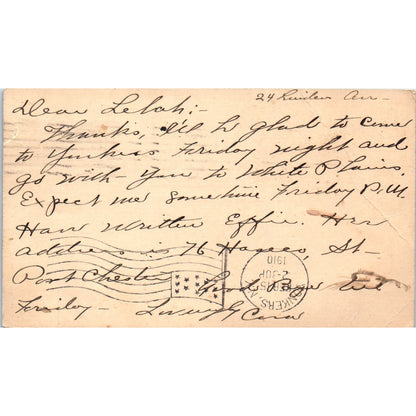 24 Linden Ave -
Dear Lelah:-
Thanks, I'll be glad to come
to Yonkers Friday night and
go with you to White Plains.
Expect me sometime Friday P.M.
Have written Effie. Her
address is 76 St-
Port Chester Good bye till
Friday - Lovingly Cora
YONKERS, N.
2-30P
1910